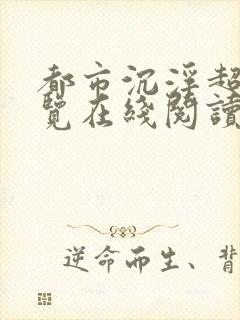 都市沉淫超
覽在綫閱讀
逆命而生、背